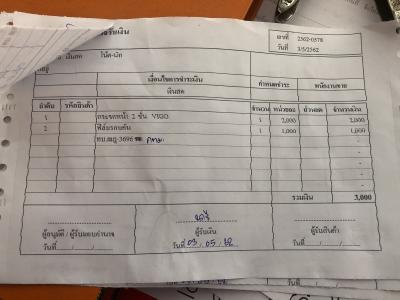 รับเงิน
เลขที่ 2562-0378
วันที่ 3/5/2562
เงินสด โน๊ต-นัท
เงื่อนไขการชำระเงิน กำหนดชำระ พนักงานขาย
เงินสด
ลำดับ รหัสสินค้า จำนวน หน่วยละ ส่วนลด จำนวนเงิน
1 กระจกหน้า 2 ชั้น VIGO 1 2,000 2,000
2 ฟิล์มรอบคัน 1 1,000 1,000
ทบ.ฒฎ-3696
รวมเงิน 3,000
ผู้อนุมัติ / ผู้รับมอบอำนาจ ผู้รับเงิน ผู้รับสินค้า
วันที่ / / วันที่ 03 / 05 / 62 วันที่ / /